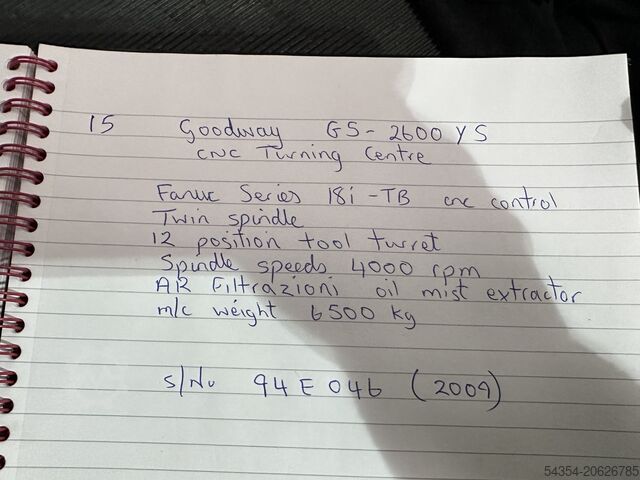 15 Goodway GS-2600 YS
CNC Turning Centre
Fanuc Series 18i-TB cnc control
Twin spindle
12 position tool turret
Spindle speeds 4000 rpm
AR Filtrazioni oil mist extractor
m/c weight 6500 kg
s/No 94E046 (2009)
54354-20626785